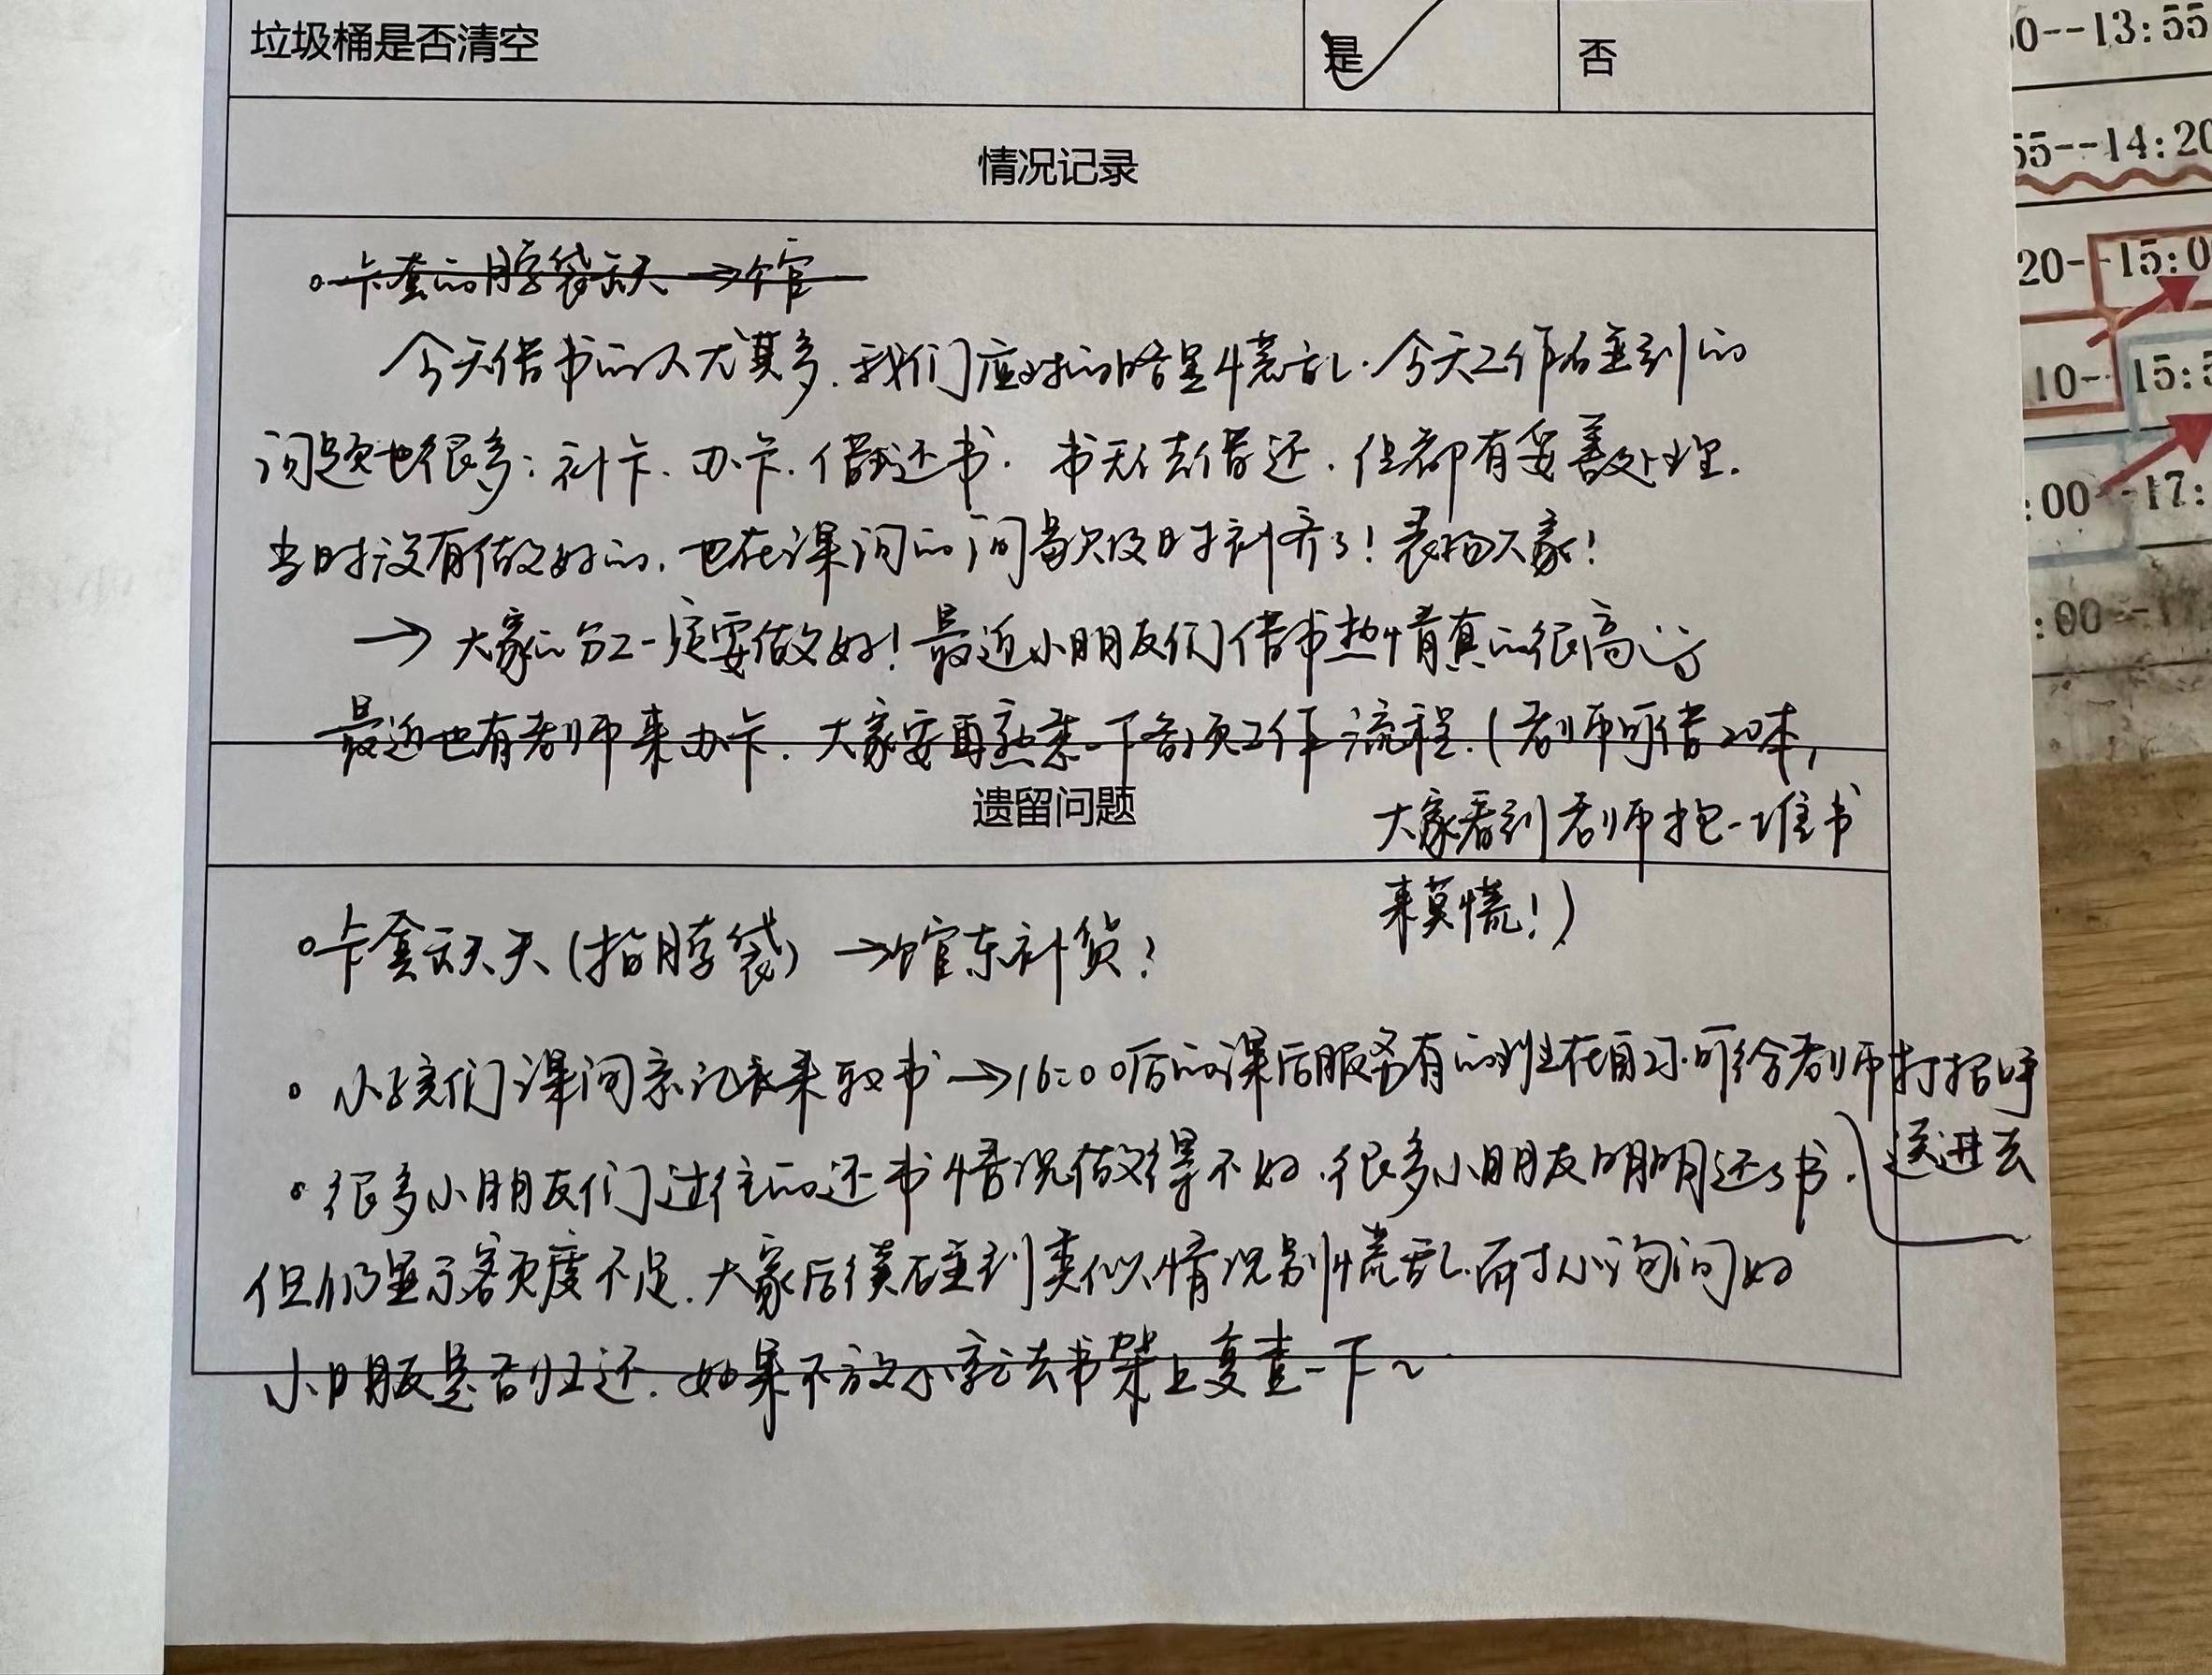 垃圾桶是否清空 是 否
情况记录
卡套的脖袋云天→馆
今天借书的人尤其多，我们应对的略显慌乱．今天工作碰到的
问题也很多：补卡、办卡、借还书．书无法借还，但都有妥善处理．
当时没有做好的，也在课间的间歇及时补齐了！表扬大家！
→大家的分工一定要做好！最近小朋友们借书热情真的很高涨
最近也有老师来办卡．大家要再熟悉一下各项工作流程．（老师可借20本，
遗留问题
大家看到老师抱一堆书
来莫慌！）
卡套云天天（指脖袋）→馆东补货？
小孩们课间忘记来取书→16:00后的课后服务有的班在自习．可给老师打招呼
送进去
很多小朋友们过往的还书情况做得不好．很多小朋友明明还了书．
但仍显示额度不足．大家后续碰到类似情况别慌乱．耐心询问好
小朋友是否归还．如果不放心就去书架上复查一下～
0--13:55
55--14:20
20--15:0
10--15:5
:00--17:
:00--1